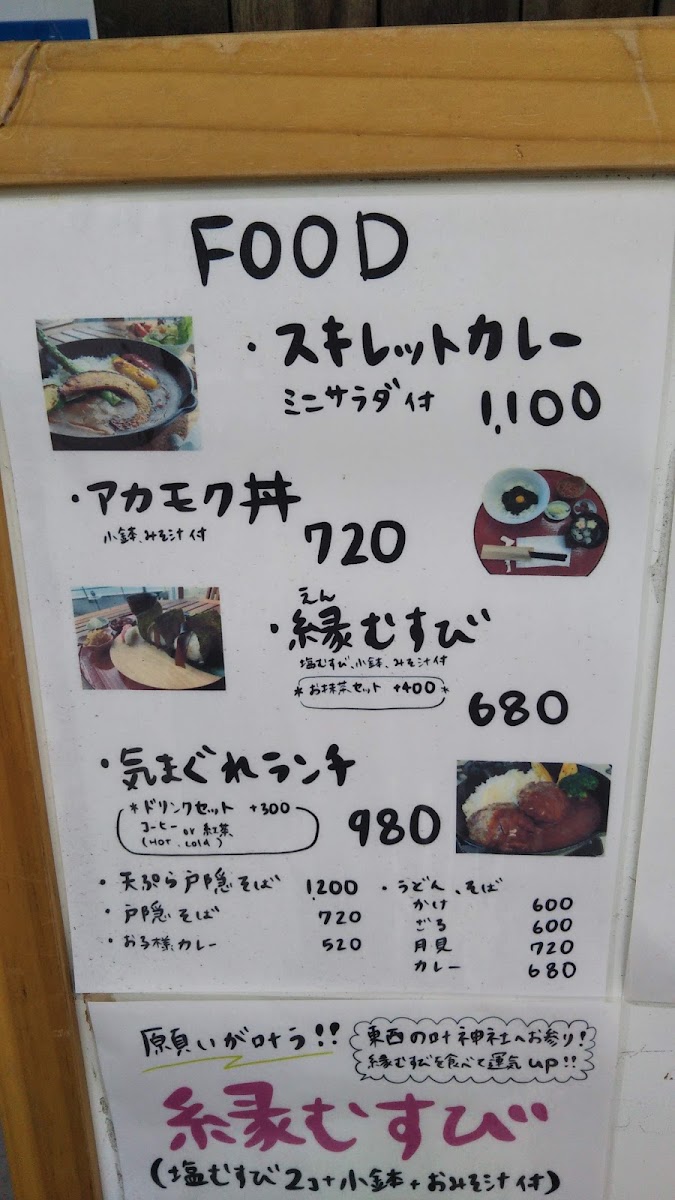 FOOD
・スキレットカレー
ミニサラダ付 1,100
・アカモク丼
小鉢、みそ汁付 720
えん
・縁むすび
塩むすび、小鉢、みそ汁付
*お抹茶セット +400*
680
・気まぐれランチ
*ドリンクセット +300
コーヒー or 紅茶
(HOT, COLD)
980
・天ぷら戸隠そば 1,200
・戸隠そば 720
・お子様カレー 520
・うどん、そば
かけ 600
ざる 600
月見 720
カレー 680
願いが叶う!!
東西の叶神社へお参り!
縁むすびを食べて運気up!!
縁むすび
(塩むすび2コ+小鉢+おみそ汁付)